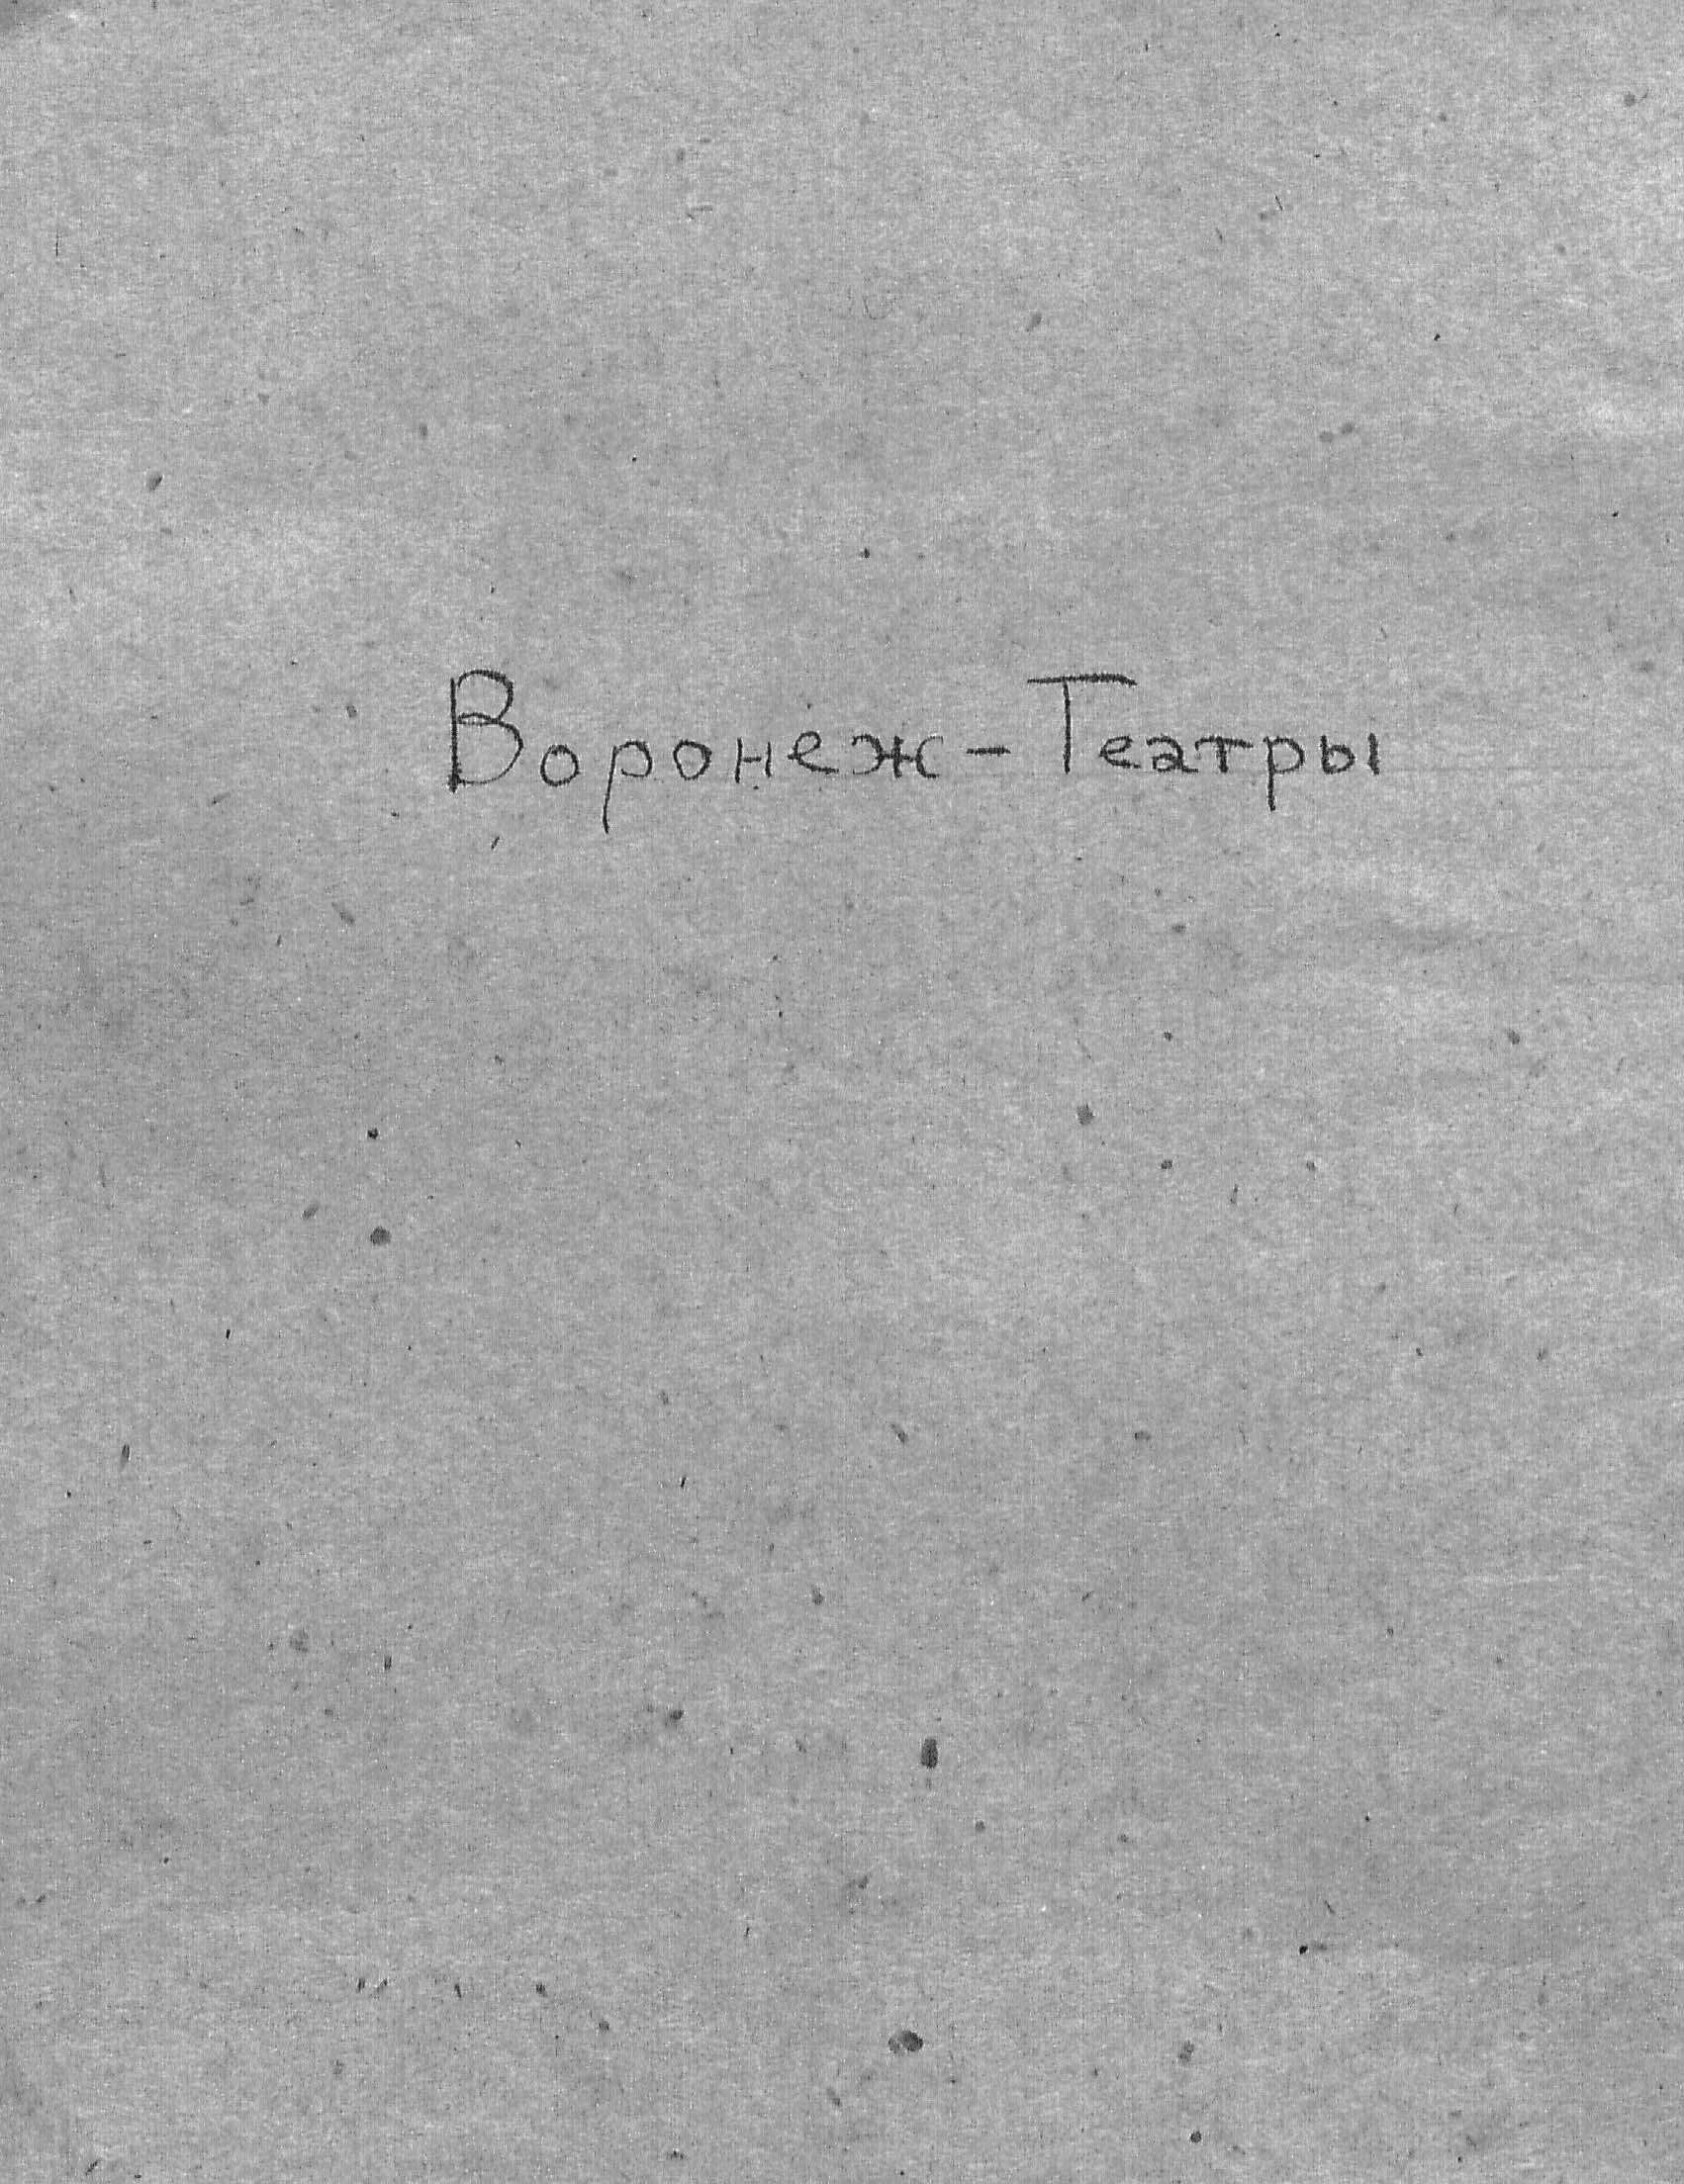 Воронеж-Театры